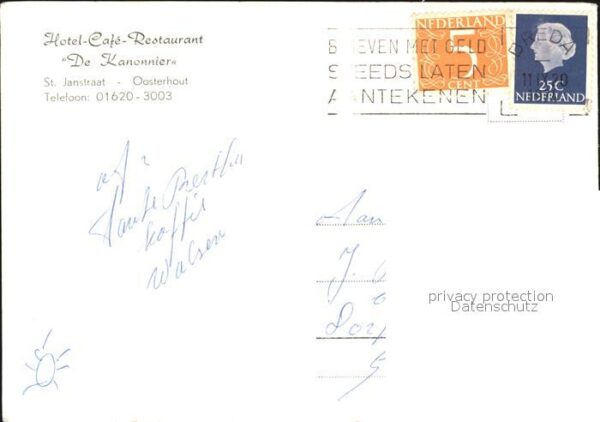 Hotel-Café-Restaurant
"De Kanonnier"
St. Janstraat - Oosterhout
Telefoon: 01620-3003
BRIEVEN MET GELD
STEEDS LATEN
AANTEKENEN
NEDERLAND
5
CENT
BREDA
25C
NEDERLAND
Tante
koffie
Walsen
Aan
J.
privacy protection
Datenschutz